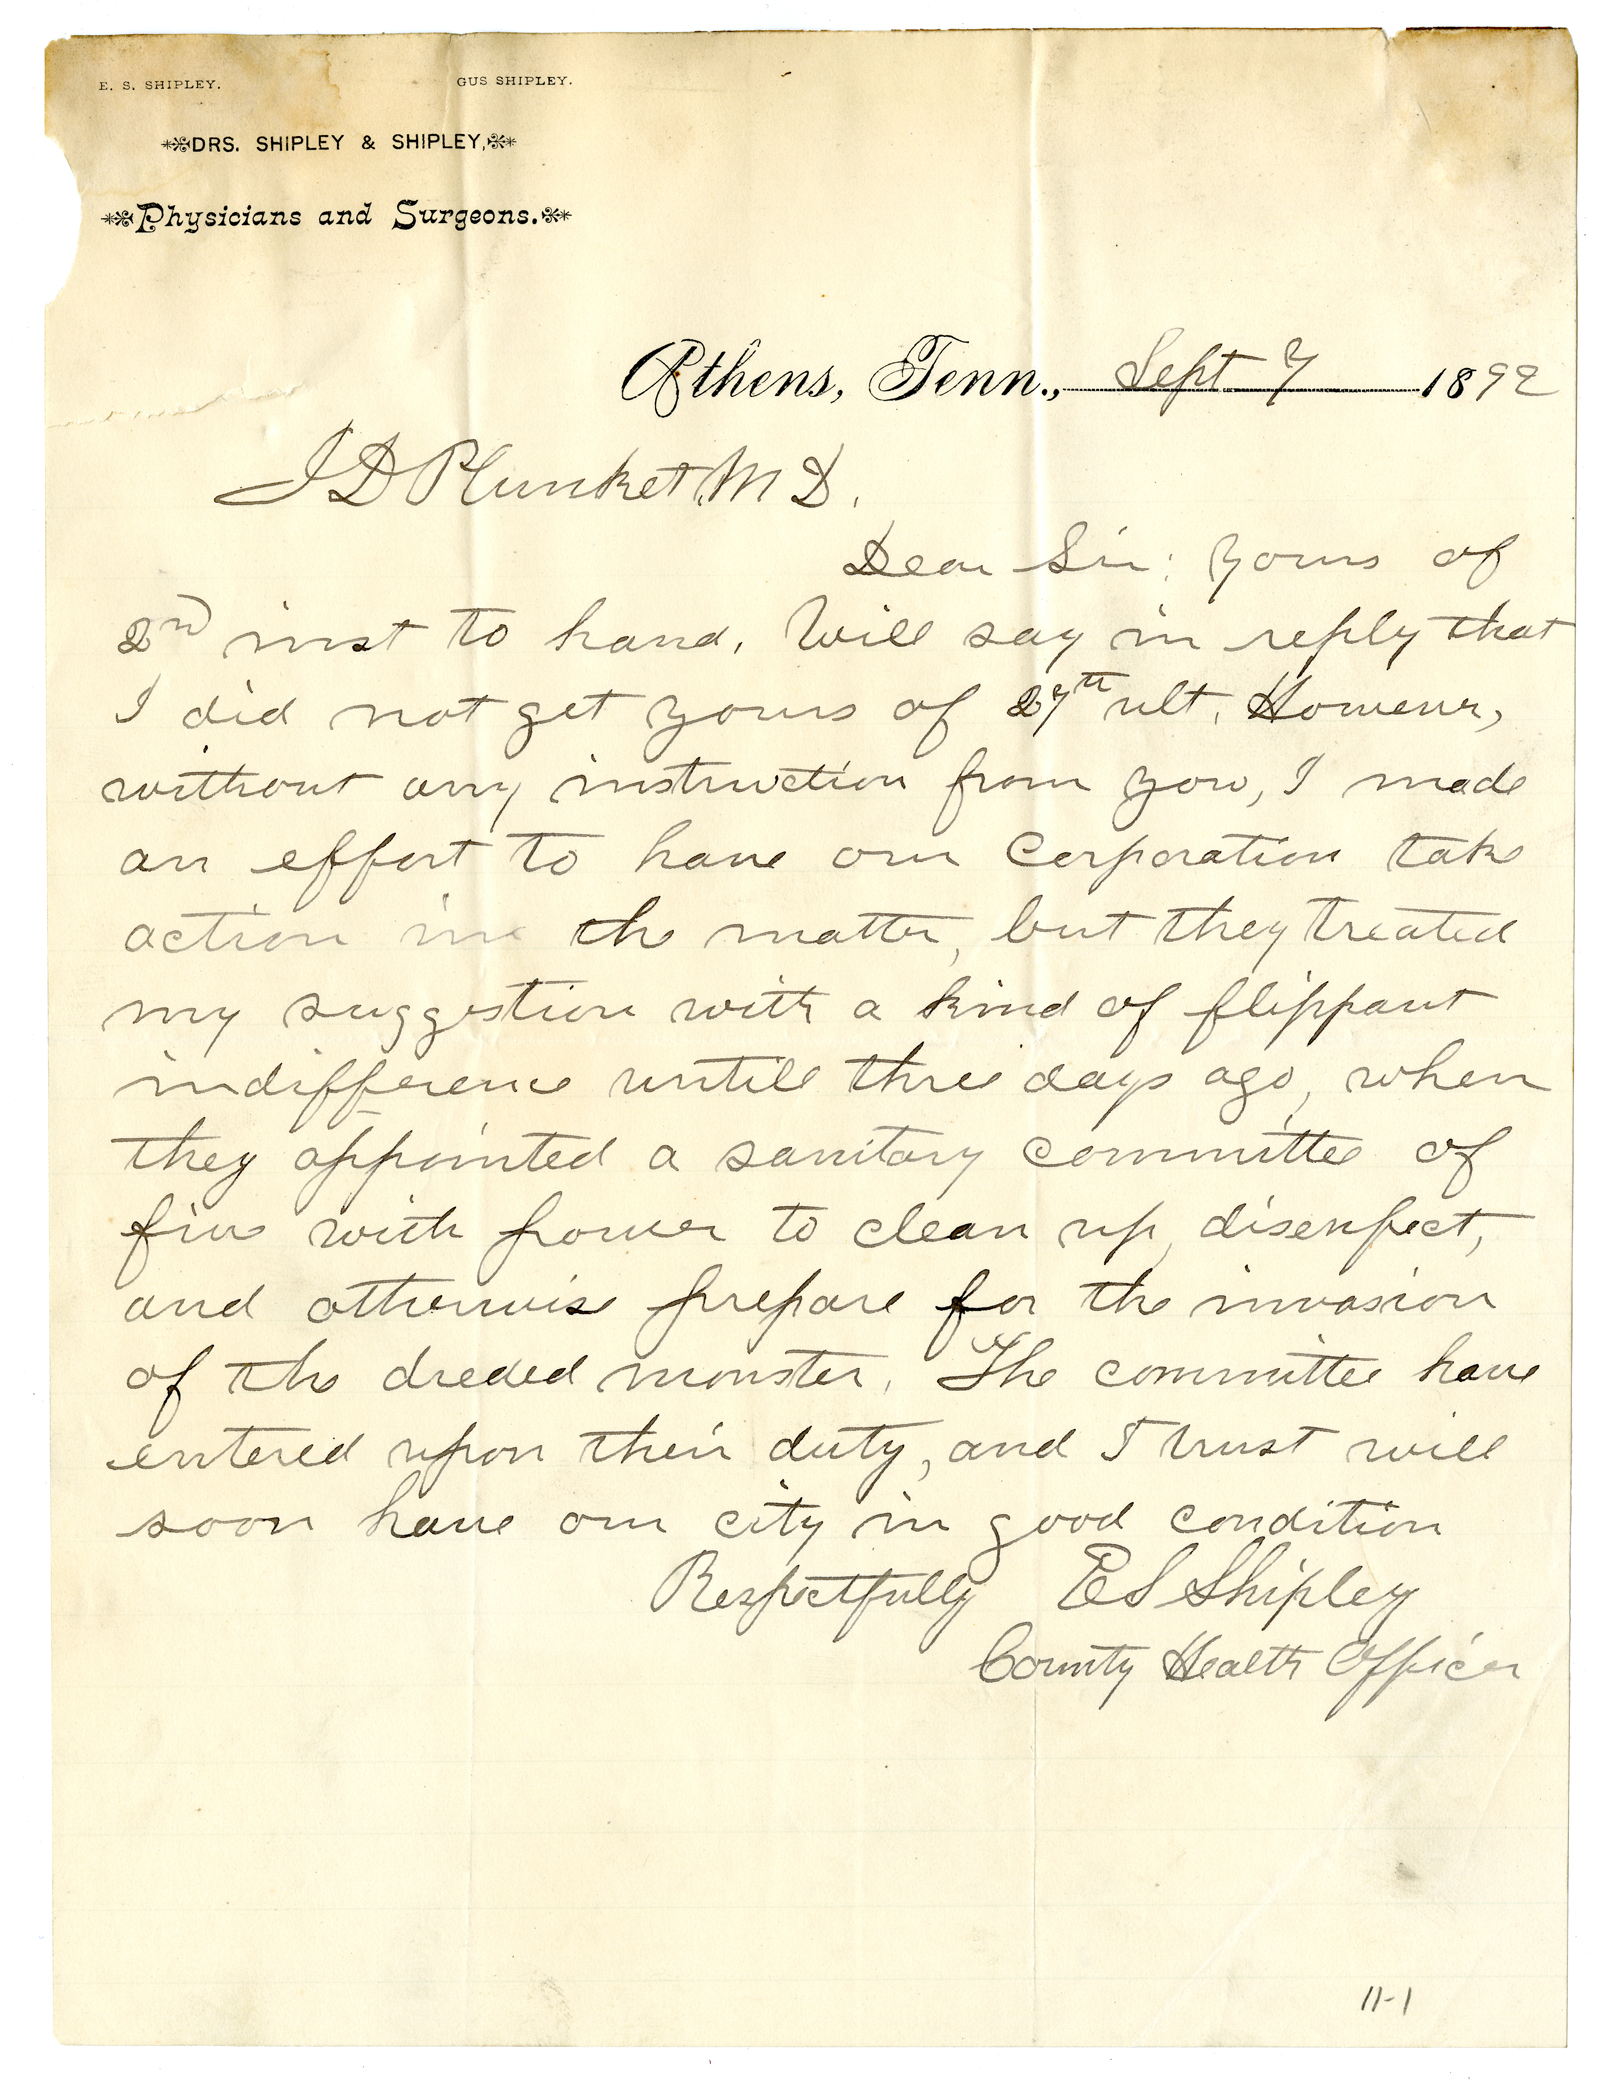 E. S. SHIPLEY. GUS SHIPLEY.
DRS. SHIPLEY & SHIPLEY,
Physicians and Surgeons.
Athens, Tenn., Sept 7 1892
J D Plunket, M D.
Dear Sir: Yours of
2nd inst to hand. Will say in reply that
I did not get yours of 27th ult. However,
without any instruction from you, I made
an effort to have our Corporation take
action in the matter, but they treated
my suggestion with a kind of flippant
indifference untill three days ago, when
they appointed a sanitary committee of
five with power to clean up, disenfect,
and otherwise prepare for the invasion
of the dreded monster. The committee have
entered upon their duty, and I trust will
soon have our city in good condition
Respectfully E S Shipley
County Health Officer
11-1